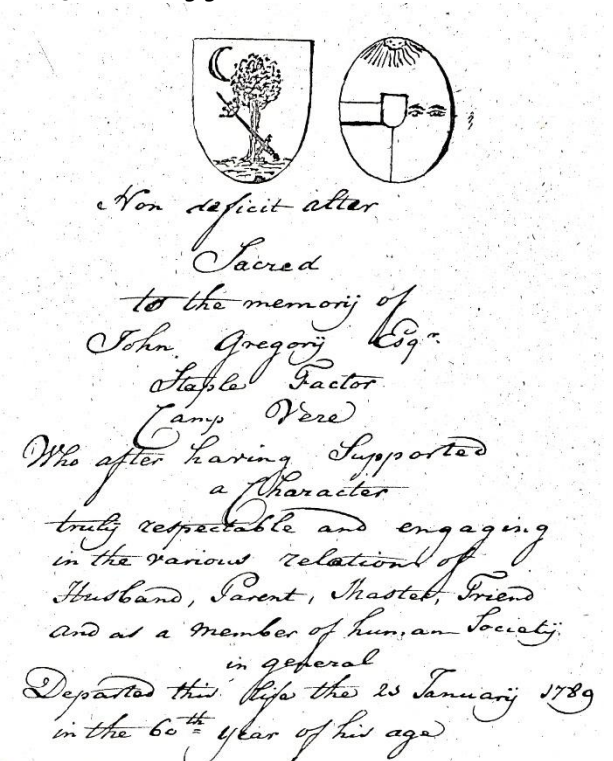 Non deficit alter
Sacred
to the memorÿ of
John Gregorÿ Esqr.
Staple Factor
Camp Vere
Who after having Supported
a Character
trulÿ respectable and engaging
in the various relations of
Husband, Parent, Master, Friend
and as a member of human Societÿ
in general
Departed this life the 23 Januarÿ 1789
in the 60th year of his age